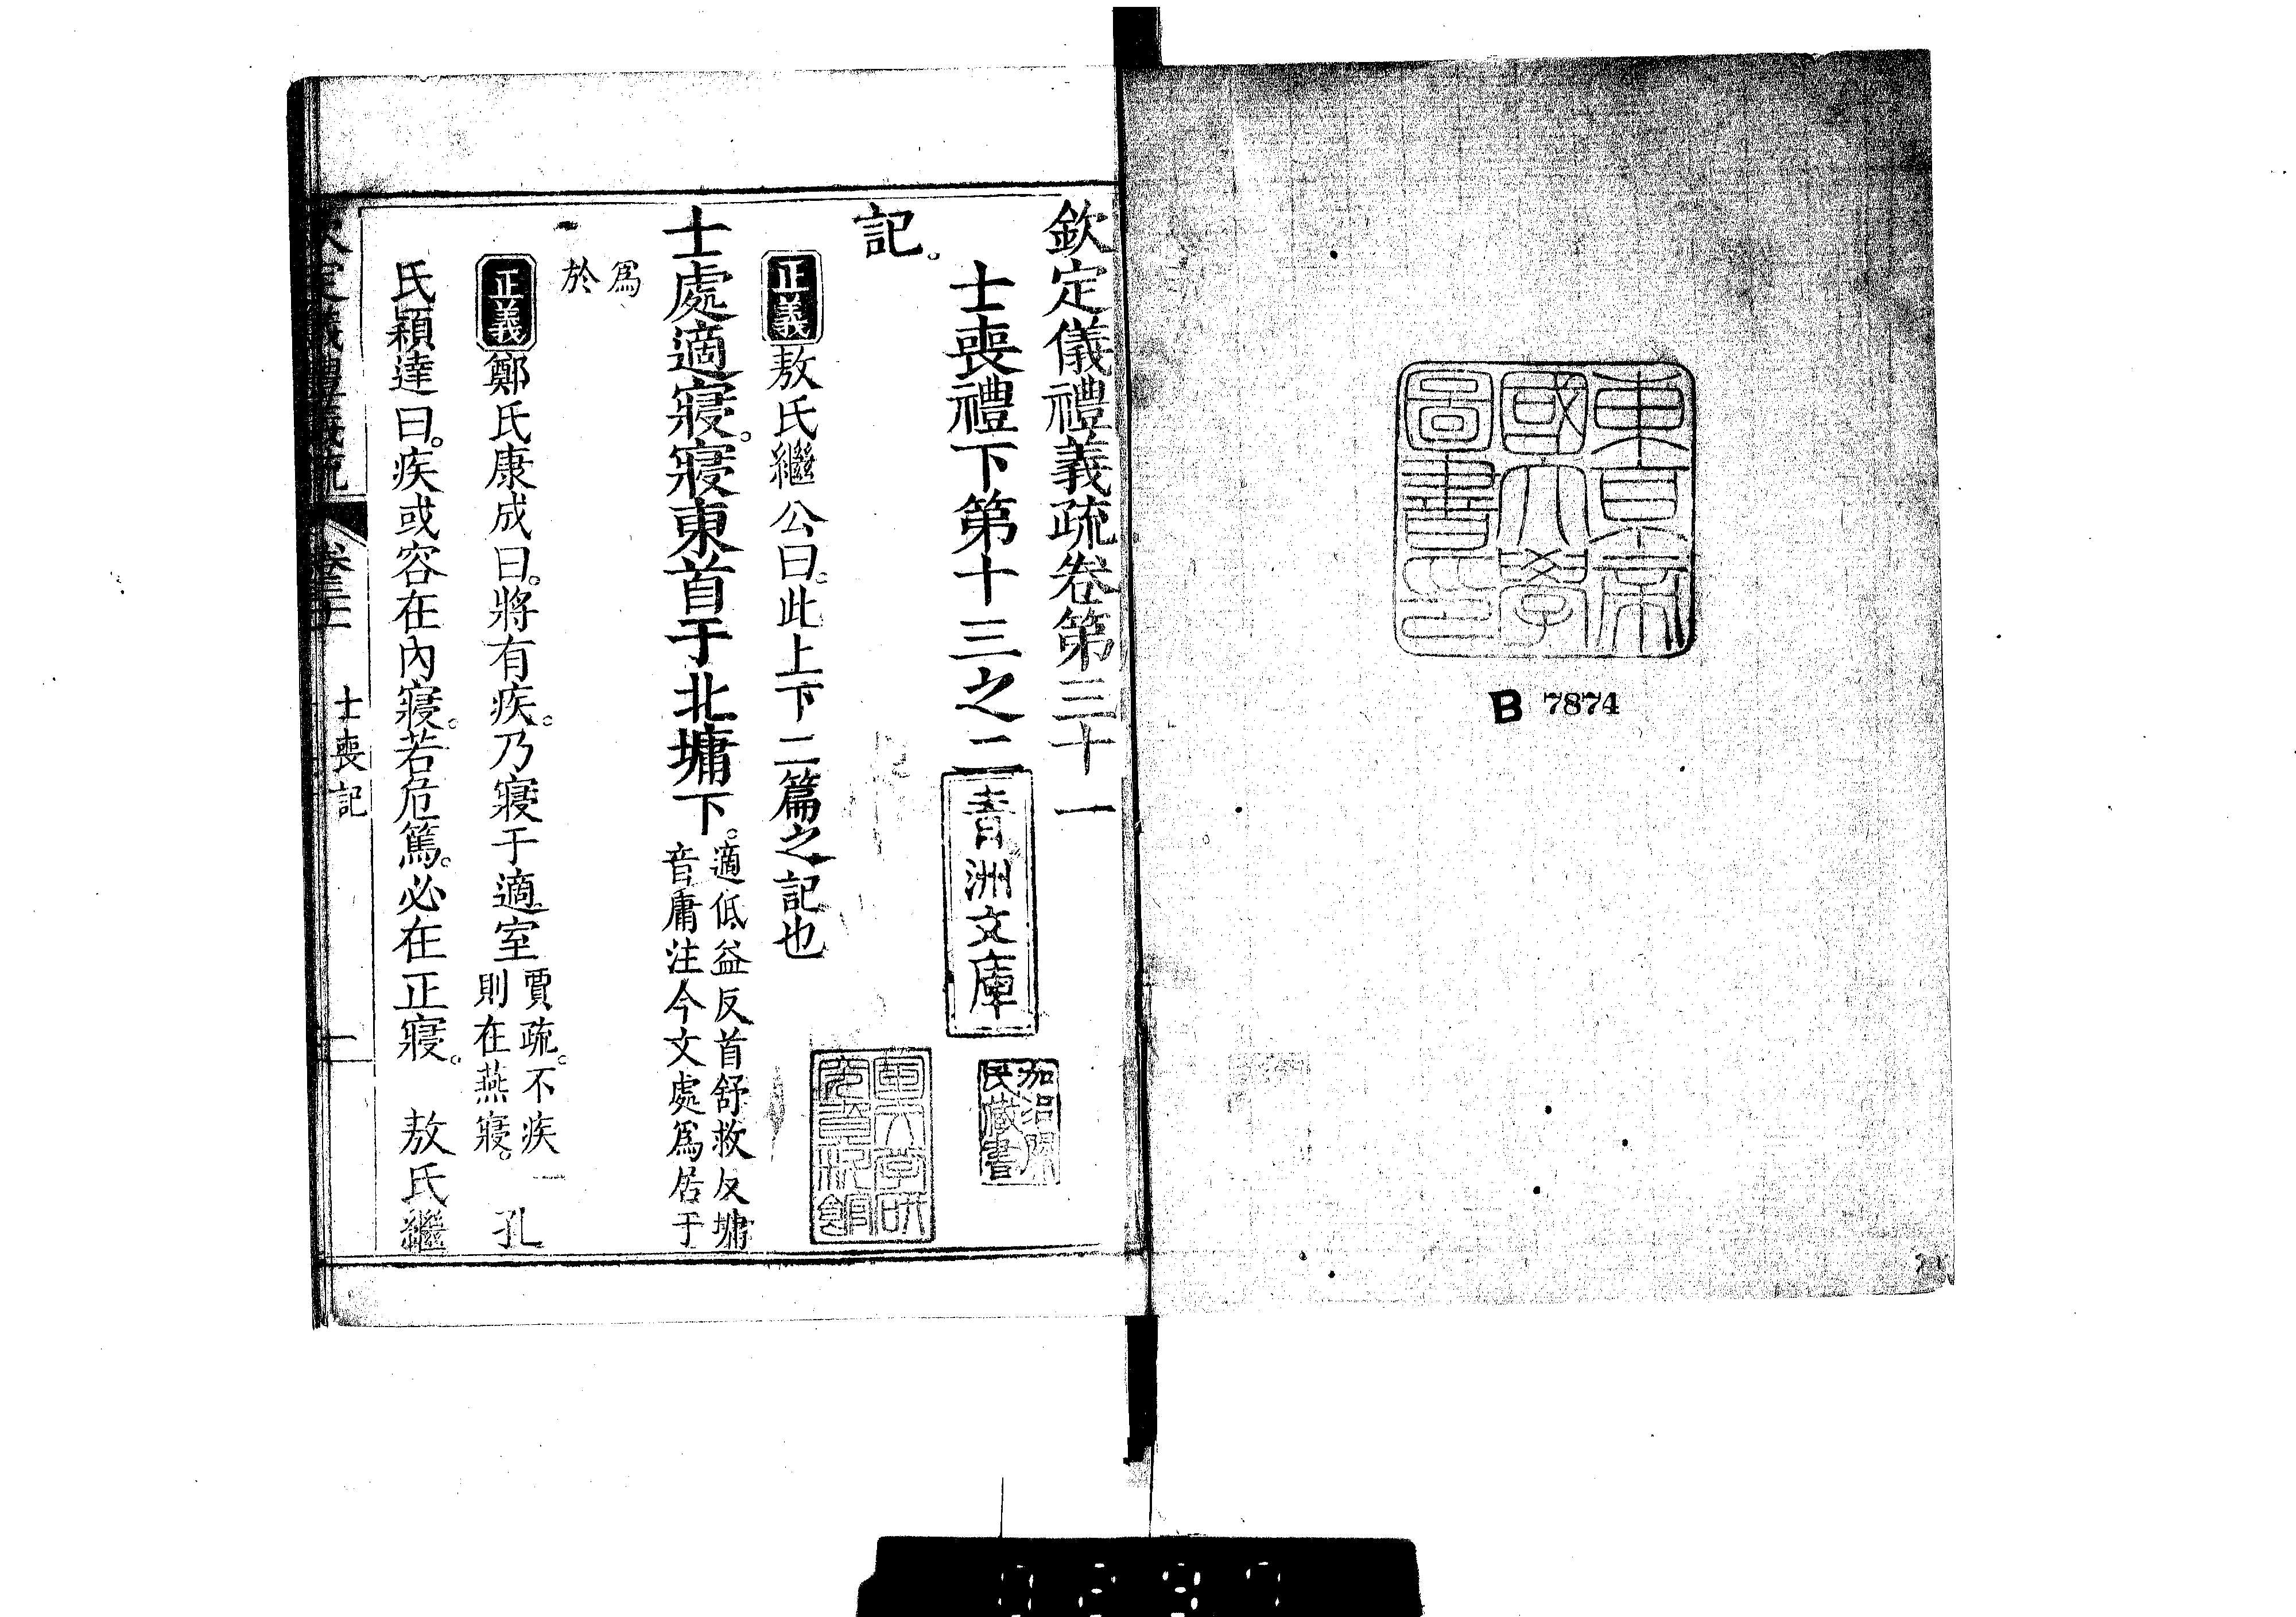 東京帝
國大學
圖書印
B 7874
欽定儀禮義疏卷第三十一
士喪禮下第十三之二
青洲文庫
記。
正義敖氏繼公曰。此上下二篇之記也
士處適寢。寢東首于北墉下。適低益反首舒救反墉
音庸注今文處爲居于
爲
於
正義鄭氏康成曰。將有疾。乃寢于適室賈疏。不疾
則在燕寢。 孔
氏穎達曰。疾或容在內寢。若危篤。必在正寢。 敖氏繼
欽定儀禮義疏 卷三十一 士喪記 一